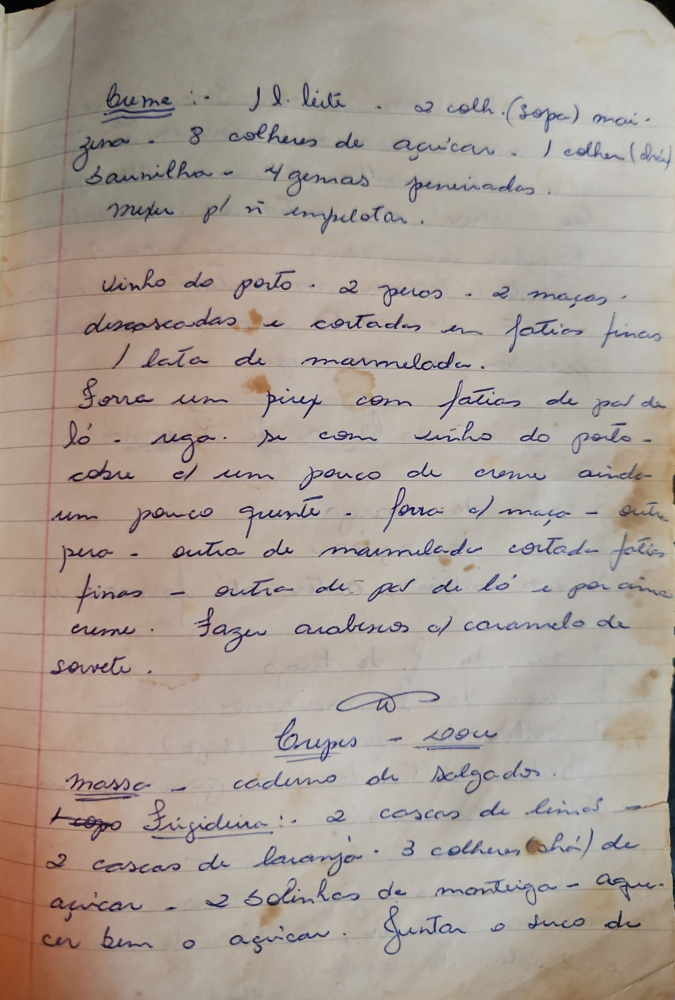 Creme :- 1 l. leite - 2 colh. (sopa) mai-
zena - 8 colheres de açúcar - 1 colher (chá)
baunilha - 4 gemas peneiradas.
Mexer p/ ñ empelotar.
Vinho do porto - 2 peras - 2 maças -
descascadas e cortadas em fatias finas
1 lata de marmelada.
Forra um pirex com fatias de pão de
ló - rega-se com vinho do porto -
cobre c/ um pouco de creme ainda
um pouco quente - forra c/ maça - outra
pera - outra de marmelada cortada fatias
finas - outra de pão de ló e por cima
creme. Fazer arabescos c/ caramelo de
sorvete.
Crepes - doce
Massa - caderno de salgados.
1 copo Frigideira :- 2 cascas de limão -
2 cascas de laranja - 3 colheres (chá) de
açúcar - 2 bolinhas de manteiga - aque-
cer bem o açúcar. Juntar o suco de